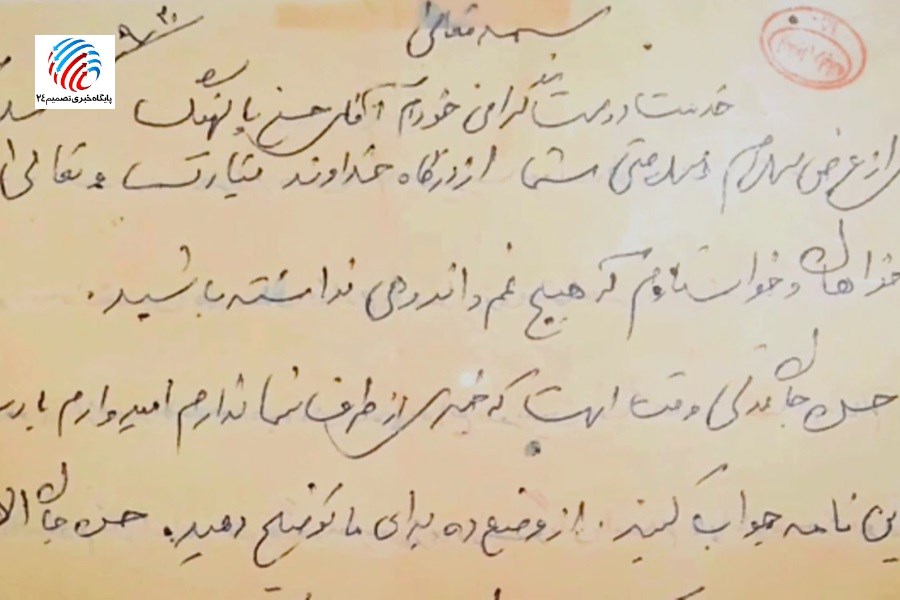 بسمه تعالی
۹/۳۰
خدمت دوست گرامی خودم آقای حسن
از عرض سلام و سلامتی شما از درگاه خداوند تبارک و تعالی
خواهان و خواستارم که هیچ غم و اندوهی نداشته باشید.
حسن جان مدتی وقت است که خبری از طرف شما ندارم امیدوارم با
این نامه جواب کنید. از وضع ده برای ما توضیح دهید. حسن جان
پایگاه خبری تصمیم ۲۴